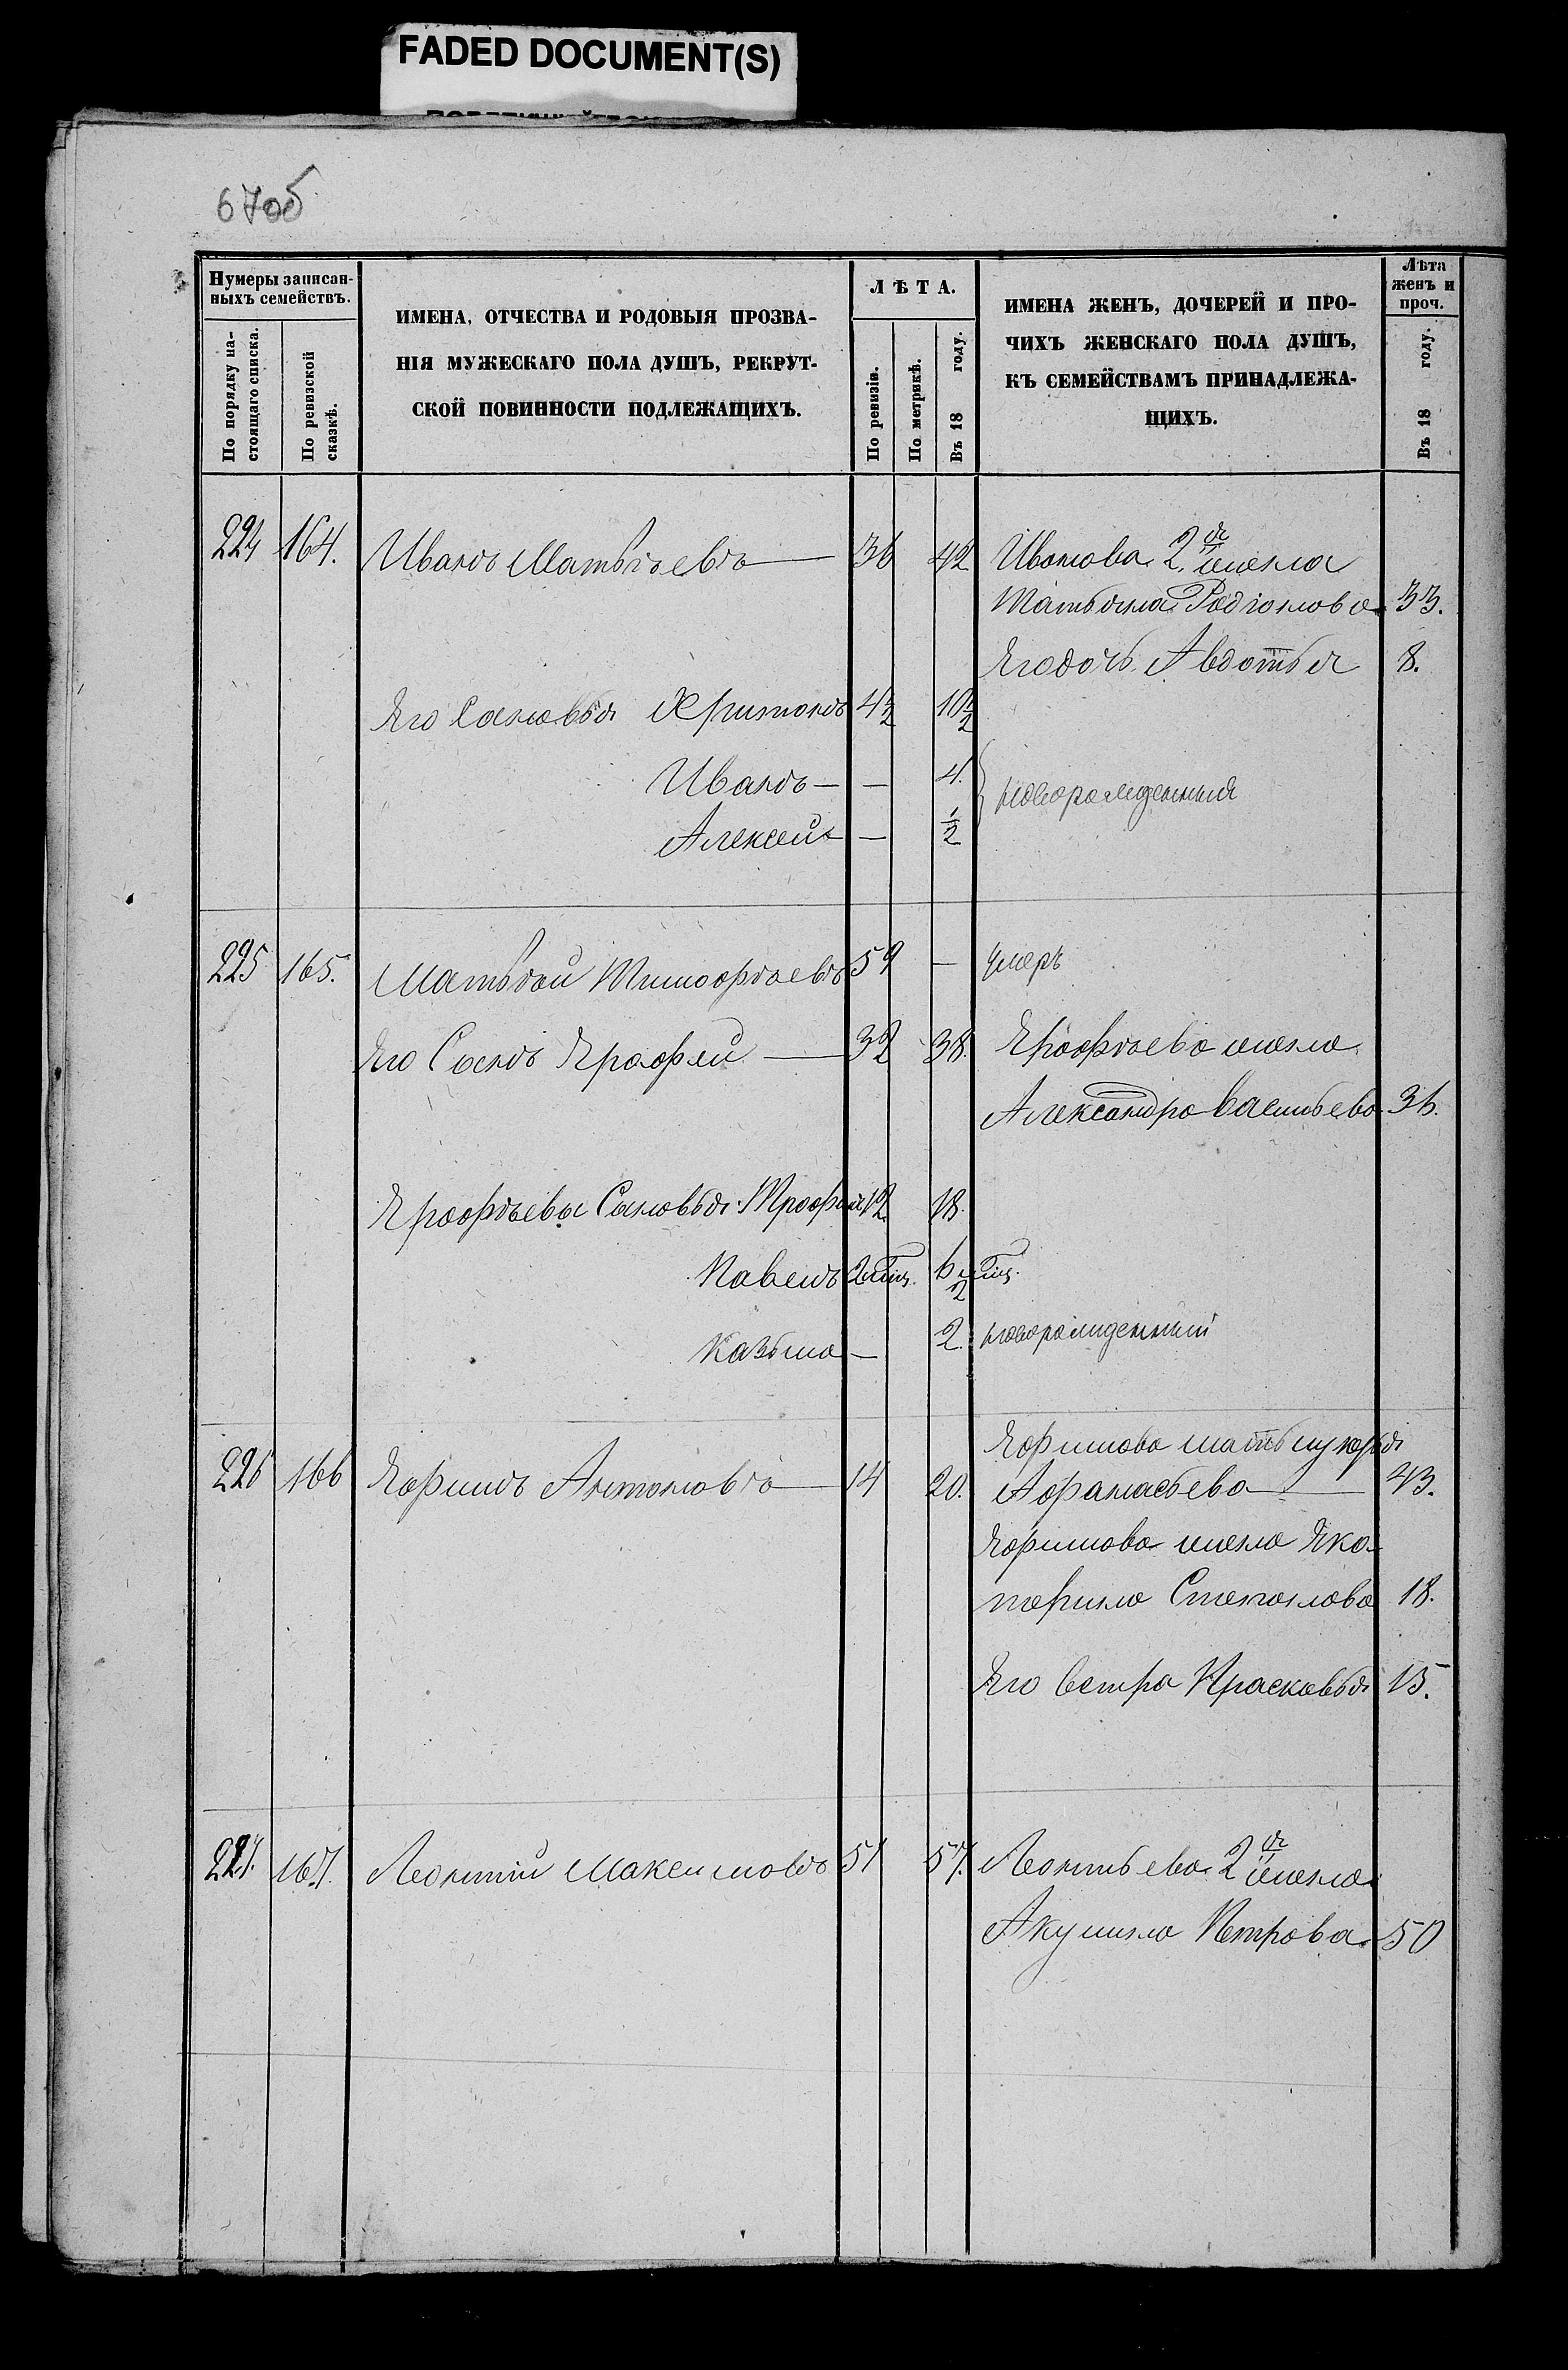 FADED DOCUMENT(S)
67об
Нумеры записан-
ныхъ семействъ.
По порядку на-
стоящаго списка.
По ревизской
сказкѣ.
ИМЕНА, ОТЧЕСТВА И РОДОВЫЯ ПРОЗВА-
НІЯ МУЖЕСКАГО ПОЛА ДУШЪ, РЕКРУТ-
СКОЙ ПОВИННОСТИ ПОДЛЕЖАЩИХЪ.
ЛѢТА.
По ревизіи.
По метрикѣ.
Въ 18 году.
ИМЕНА ЖЕНЪ, ДОЧЕРЕЙ И ПРО-
ЧИХЪ ЖЕНСКАГО ПОЛА ДУШЪ,
КЪ СЕМЕЙСТВАМЪ ПРИНАДЛЕЖА-
ЩИХЪ.
Лѣта
женъ и
проч.
Въ 18 году.
224 164. Иванъ Матвѣевъ 36 42 Иванова 2я жена
Татьяна Радіонова 33.
Его дочь Авдотья 8.
Его Сыновья Харитонъ 4½ 10½
Иванъ — — 4. новорожденныя
Алексей — ½
225 165. Матвѣй Тимофѣевъ 59 — умеръ
Его Сынъ Ерофей 32 38. Ерофѣева жена
Александра Васильева 36.
Ерофѣевы Сыновья: Трофимъ 12 18.
Павелъ 2 мѣц. 6 2 мѣц.
Казьма — 2. новорожденный
Ефимова мать Лукерья
226 166 Ефимъ Антоновъ 14 20. Афанасьева 43.
Ефимова жена Ека-
терина Степанова 18.
Его Сестра Прасковья 15.
227. 167. Леонтій Максимовъ 51 57. Леонтьева 2я жена
Акулина Петрова 50